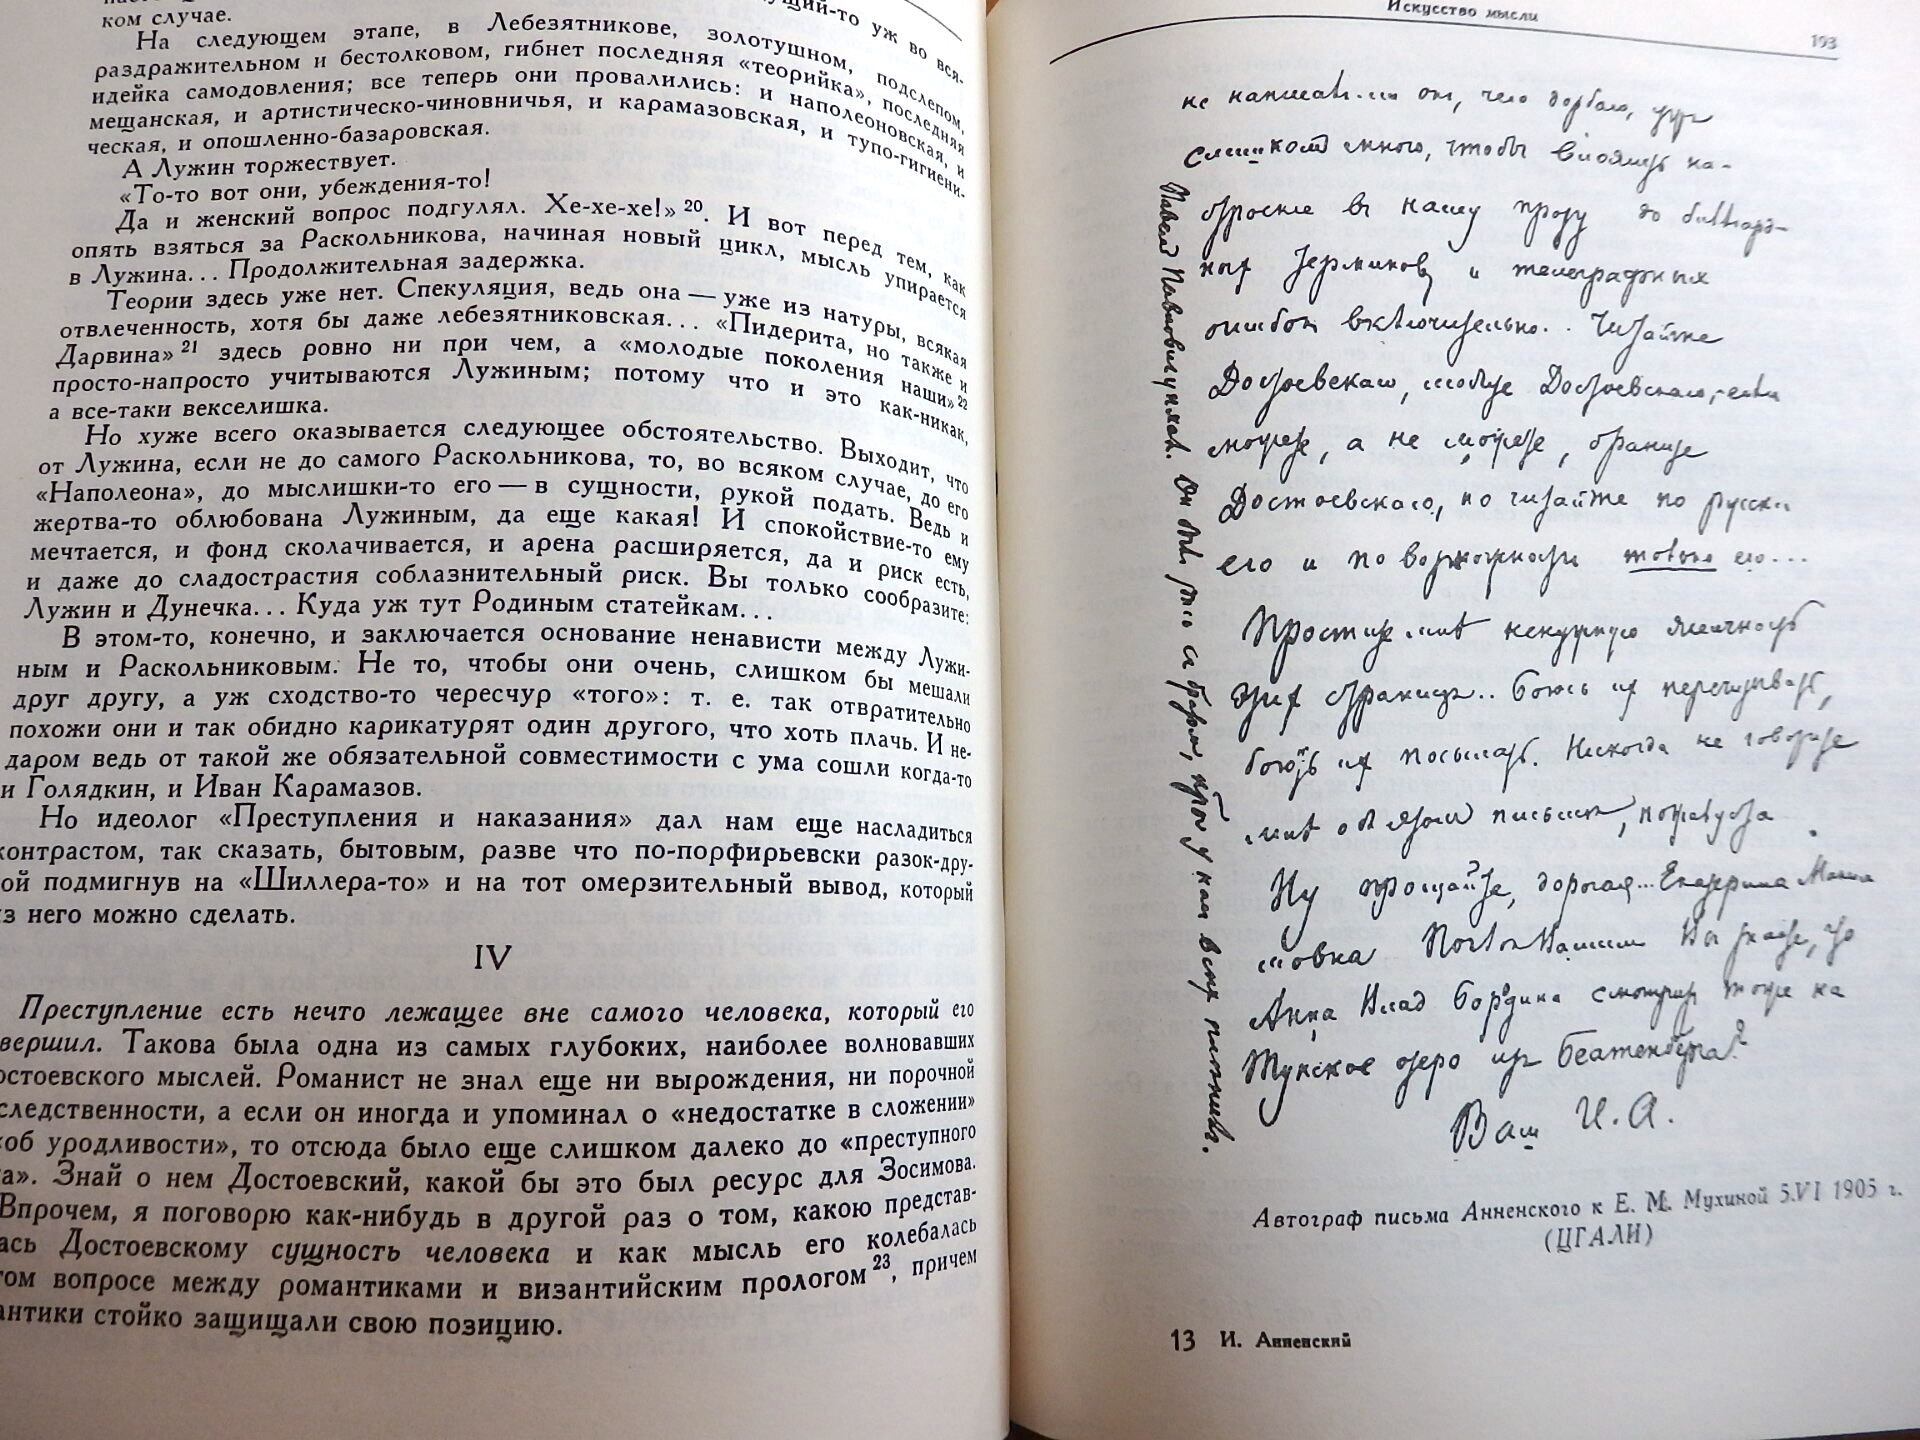 ком случае.
На следующем этапе, в Лебезятникове, золотушном, подслепом,
раздражительном и бестолковом, гибнет последняя «теорийка», последняя
идейка самодовления; все теперь они провалились: и наполеоновская, и
мещанская, и артистическо-чиновничья, и карамазовская, и тупо-гигиени-
ческая, и опошленно-базаровская.
А Лужин торжествует.
«То-то вот они, убеждения-то!
Да и женский вопрос подгулял. Хе-хе-хе!» 20. И вот перед тем, как
опять взяться за Раскольникова, начиная новый цикл, мысль упирается
в Лужина... Продолжительная задержка.
Теории здесь уже нет. Спекуляция, ведь она — уже из натуры, всякая
отвлеченность, хотя бы даже лебезятниковская... «Пидерита, но также и
Дарвина» 21 здесь ровно ни при чем, а «молодые поколения наши» 22
просто-напросто учитываются Лужиным; потому что и это как-никак,
а все-таки векселишка.
Но хуже всего оказывается следующее обстоятельство. Выходит, что
от Лужина, если не до самого Раскольникова, то, во всяком случае, до его
«Наполеона», до мыслишки-то его — в сущности, рукой подать. Ведь и
жертва-то облюбована Лужиным, да еще какая! И спокойствие-то ему
мечтается, и фонд сколачивается, и арена расширяется, да и риск есть,
и даже до сладострастия соблазнительный риск. Вы только сообразите:
Лужин и Дунечка... Куда уж тут Родиным статейкам...
В этом-то, конечно, и заключается основание ненависти между Лужи-
ным и Раскольниковым. Не то, чтобы они очень, слишком бы мешали
друг другу, а уж сходство-то чересчур «того»: т. е. так отвратительно
похожи они и так обидно карикатурят один другого, что хоть плачь. И не-
даром ведь от такой же обязательной совместимости с ума сошли когда-то
и Голядкин, и Иван Карамазов.
Но идеолог «Преступления и наказания» дал нам еще насладиться
контрастом, так сказать, бытовым, разве что по-порфирьевски разок-дру-
ой подмигнув на «Шиллера-то» и на тот омерзительный вывод, который
из него можно сделать.
IV
Преступление есть нечто лежащее вне самого человека, который его
вершил. Такова была одна из самых глубоких, наиболее волновавших
остоевского мыслей. Романист не знал еще ни вырождения, ни порочной
следственности, а если он иногда и упоминал о «недостатке в сложении»
об уродливости», то отсюда было еще слишком далеко до «преступного
а». Знай о нем Достоевский, какой бы это был ресурс для Зосимова.
Впрочем, я поговорю как-нибудь в другой раз о том, какою представ-
ась Достоевскому сущность человека и как мысль его колебалась
том вопросе между романтиками и византийским прологом 23, причем
антики стойко защищали свою позицию.
Искусство мысли
193
не написал он, чего доброго,
слишком много, чтобы на-
броски в нашу прозу до биллиард-
ных терминов и телеграфных
ошибок включительно.. Читайте
Достоевского, любите Достоевского, если
можете, а не можете, браните
Достоевского, но читайте по русски
его и по возможности только его...
Простите мне нескурную
этих страниц.. Боюсь их перечитывать,
боюсь их посылать. Никогда не говорите
мне об этом письме, пожалуйста.
Ну прощайте, дорогая... Екатерина Макси-
мовна Поклон Вашим Вы знаете, что
Анна Влад Бородина смотрит тоже на
Тунское озеро из Беатенберга?
Ваш И. А.
Павел Павлович у них. Он был у нас с братом, кот у нам всех
Автограф письма Анненского к Е. М. Мухиной 5.VI 1905 г.
(ЦГАЛИ)
13 И. Анненский